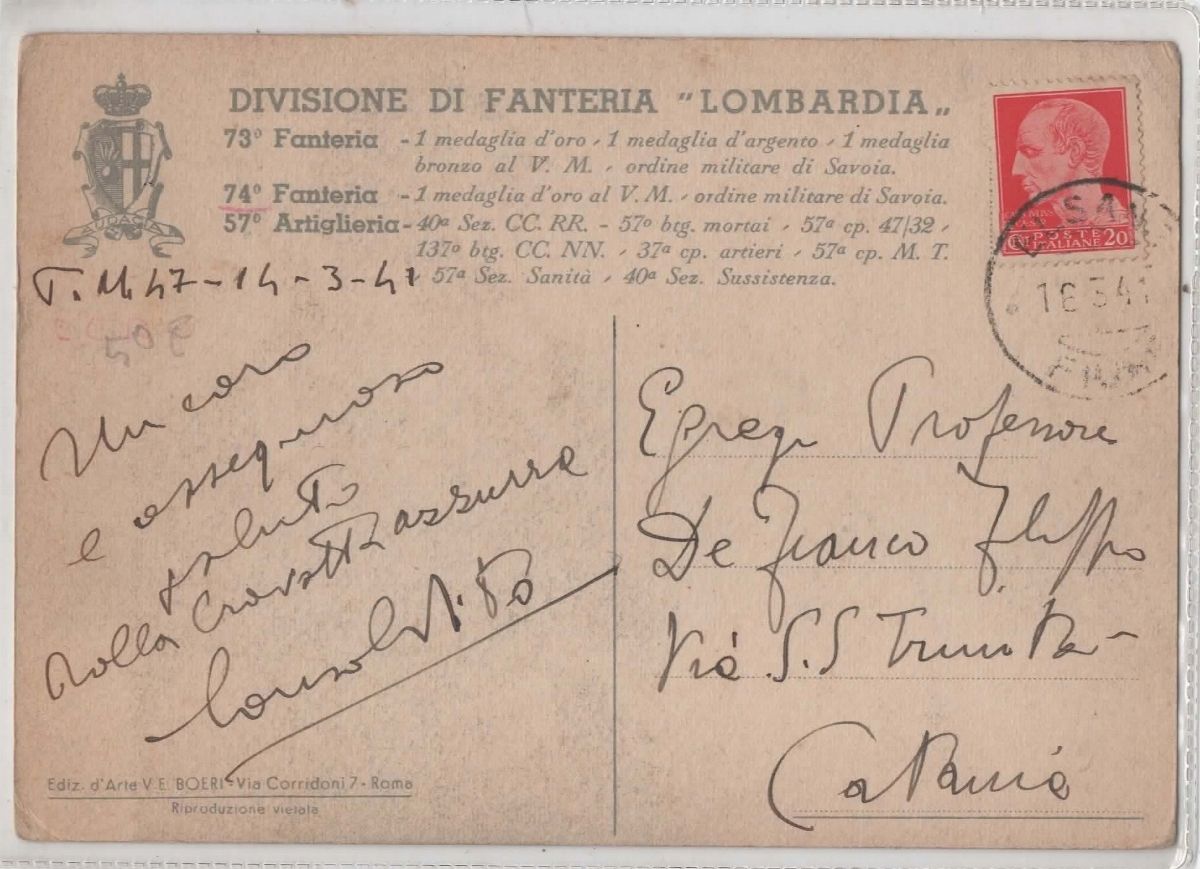 DIVISIONE DI FANTERIA "LOMBARDIA„
73º Fanteria - 1 medaglia d'oro - 1 medaglia d'argento - 1 medaglia
bronzo al V. M. - ordine militare di Savoia.
74º Fanteria - 1 medaglia d'oro al V. M. - ordine militare di Savoia.
57º Artiglieria - 40ª Sez. CC. RR. - 57º btg. mortai - 57ª cp. 47/32 -
137º btg. CC. NN. - 37ª cp. artieri - 57ª cp. M. T.
- 57ª Sez. Sanità - 40ª Sez. Sussistenza.
AUDACIA
POSTE
ITALIANE 20
18 3 41
P.M. 47 - 14 - 3 - 41
502
Un caro
e ossequioso
saluto
dalla Cravatta azzurra
Egregi Professore
De Franco Filippo
Via S.S Trinita -
Catania
Ediz. d'Arte V. E. BOERI - Via Corridoni 7 - Roma
Riproduzione vietata